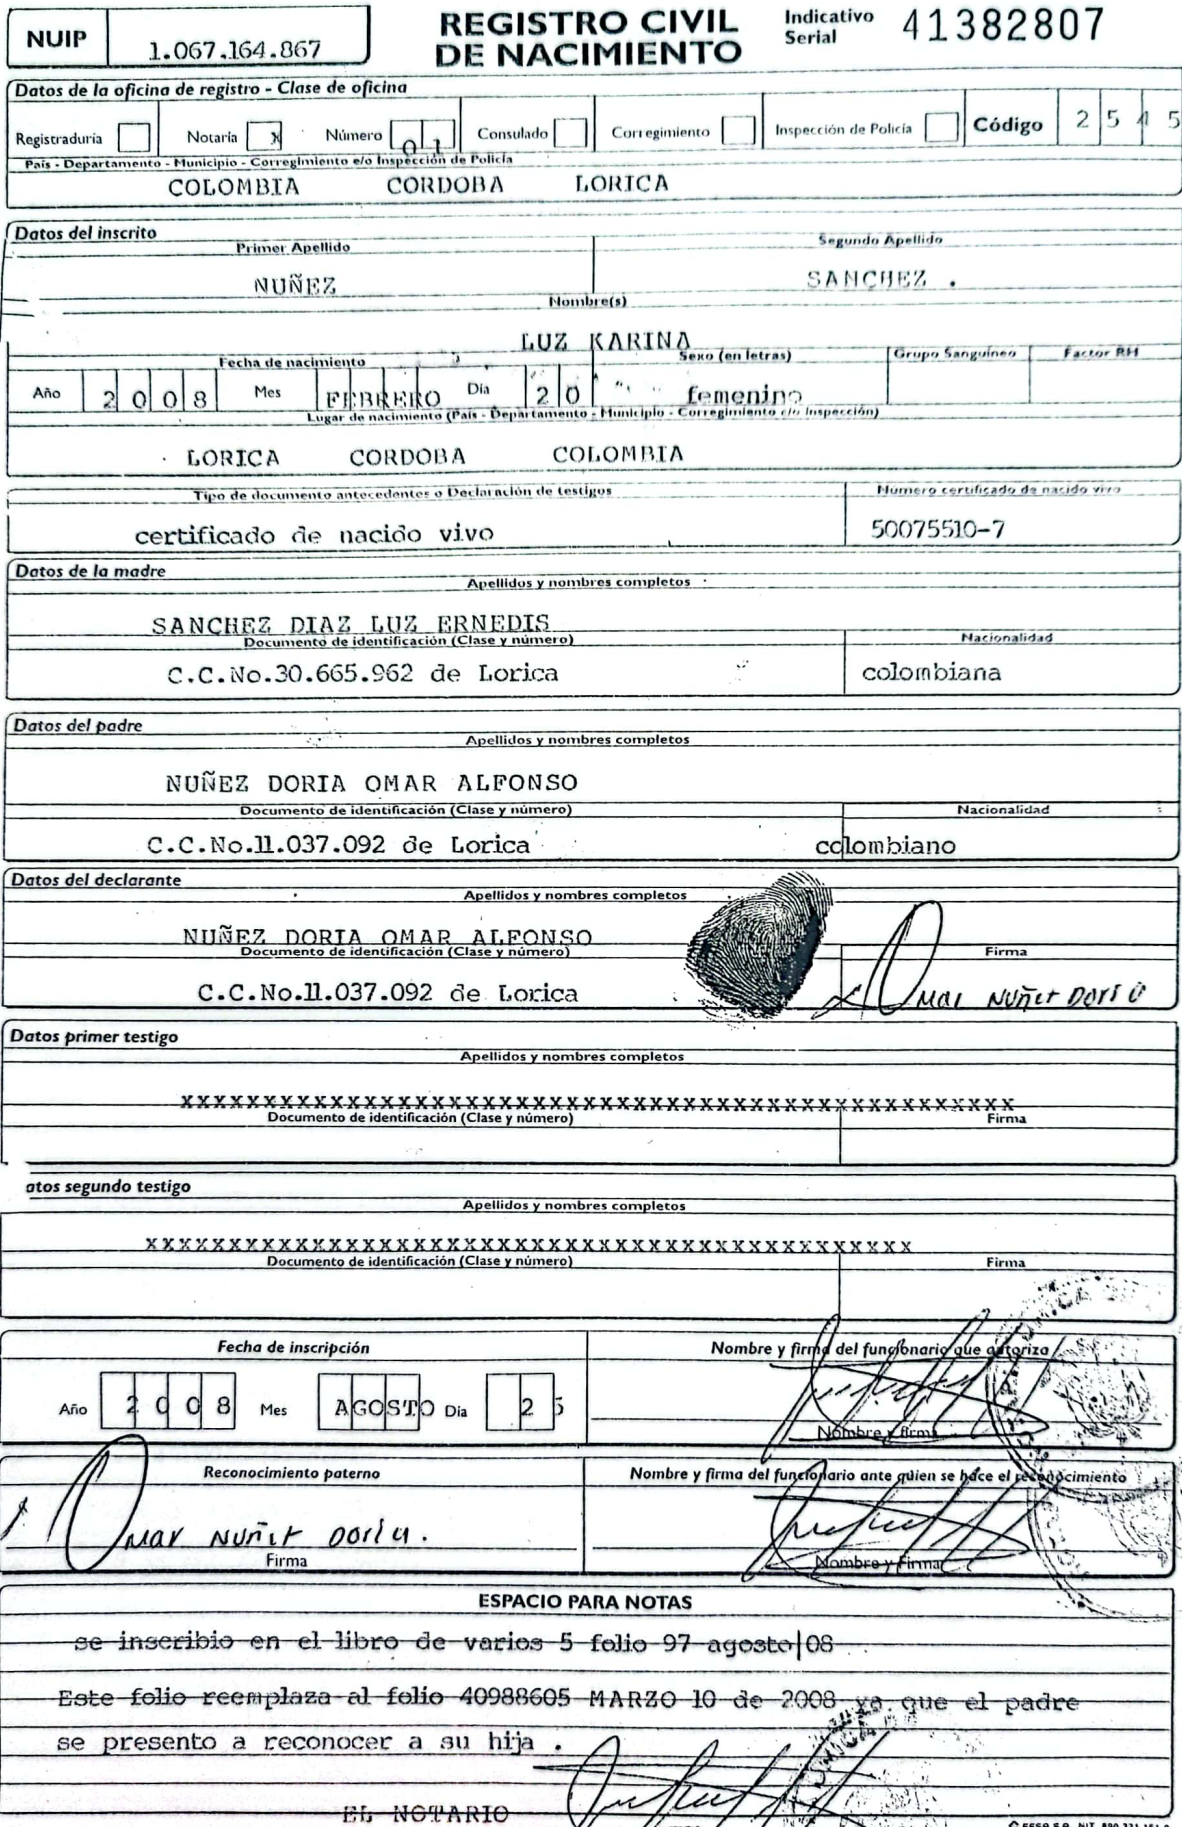 NUIP 1.067.164.867
REGISTRO CIVIL DE NACIMIENTO
Indicativo Serial 41382807
Datos de la oficina de registro - Clase de oficina
Registraduría Notaría x Número 01 Consulado Corregimiento Inspección de Policía Código 2 5 4 5
País - Departamento - Municipio - Corregimiento e/o Inspección de Policía
COLOMBIA CORDOBA LORICA
Datos del inscrito
Primer Apellido Segundo Apellido
NUÑEZ SANCHEZ .
Nombre(s)
LUZ KARINA
Fecha de nacimiento Sexo (en letras) Grupo Sanguíneo Factor RH
Año 2008 Mes FEBRERO Día 20 femenino
Lugar de nacimiento (País - Departamento - Municipio - Corregimiento e/o Inspección)
LORICA CORDOBA COLOMBIA
Tipo de documento antecedentes o Declaración de testigos Numero certificado de nacido vivo
certificado de nacido vivo 50075510-7
Datos de la madre
Apellidos y nombres completos
SANCHEZ DIAZ LUZ ERNEDIS
Documento de identificación (Clase y número) Nacionalidad
C.C.No.30.665.962 de Lorica colombiana
Datos del padre
Apellidos y nombres completos
NUÑEZ DORIA OMAR ALFONSO
Documento de identificación (Clase y número) Nacionalidad
C.C.No.11.037.092 de Lorica colombiano
Datos del declarante
Apellidos y nombres completos
NUÑEZ DORIA OMAR ALFONSO
Documento de identificación (Clase y número) Firma
C.C.No.11.037.092 de Lorica Omar Nuñez Doria
Datos primer testigo
Apellidos y nombres completos
xxxxxxxxxxxxxxxxxxxxxxxxxxxxxxxxxxxxxxxxxxxxxxxxxxx
Documento de identificación (Clase y número) Firma
atos segundo testigo
Apellidos y nombres completos
xxxxxxxxxxxxxxxxxxxxxxxxxxxxxxxxxxxxxxxxxxxxxxx
Documento de identificación (Clase y número) Firma
Fecha de inscripción Nombre y firma del funcionario que autoriza
Año 2008 Mes AGOSTO Día 25
Nombre y firma
Reconocimiento paterno Nombre y firma del funcionario ante quien se hace el reconocimiento
Omar Nuñez Doria.
Firma Nombre y Firma
ESPACIO PARA NOTAS
se inscribio en el libro de varios 5 folio 97 agosto|08
Este folio reemplaza al folio 40988605 MARZO 10 de 2008 ya que el padre
se presento a reconocer a su hija .
EL NOTARIO